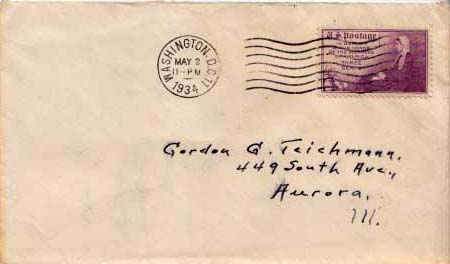 WASHINGTON, D.C. 11
MAY 2
11-PM
1934
U.S. Postage
THREE
Gordon G. Teichmann,
449 South Ave.,
Aurora,
Ill.